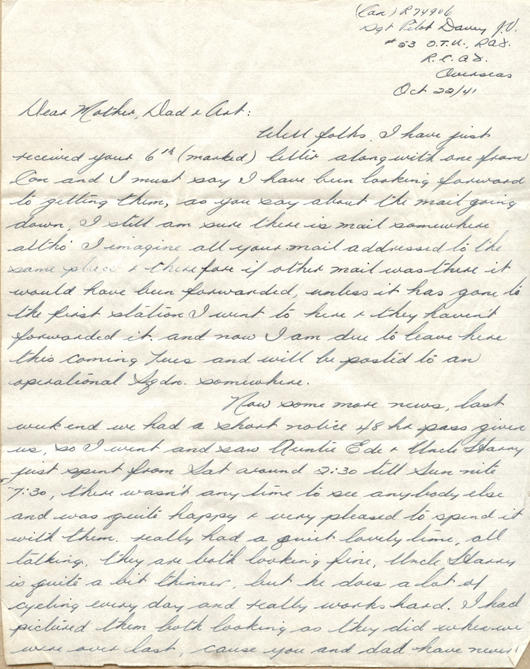 (Can) R74906
Sgt Pilot Davey J.V.
#53 O.T.U., RAF.
R.C.A.F.
Overseas
Oct 22/41
Dear Mother, Dad & Art:
Well folks, I have just
received your 6th (marked) letter along with one from
Con and I must say I have been looking forward
to getting them, as you say about the mail going
down, I still am sure there is mail somewhere
altho' I imagine all your mail addressed to the
same place & therefore if other mail was there it
would have been forwarded, unless it has gone to
the first station I went to here & they haven't
forwarded it. and now I am due to leave here
this coming Tues and will be posted to an
operational Sqdn. somewhere.
Now some more news, last
week end we had a short notice 48 hr pass given
us, so I went and saw Auntie Ede & Uncle Harry
just spent from Sat around 2:30 till Sun nite
7:30, there wasn't any time to see anybody else
and was quite happy & very pleased to spend it
with them. really had a quiet lovely time, all
talking, they are both looking fine, Uncle Harry
is quite a bit thinner, but he does a lot of
cycling every day and really works hard. I had
pictured them both looking as they did when we
were over last, cause you and dad have never